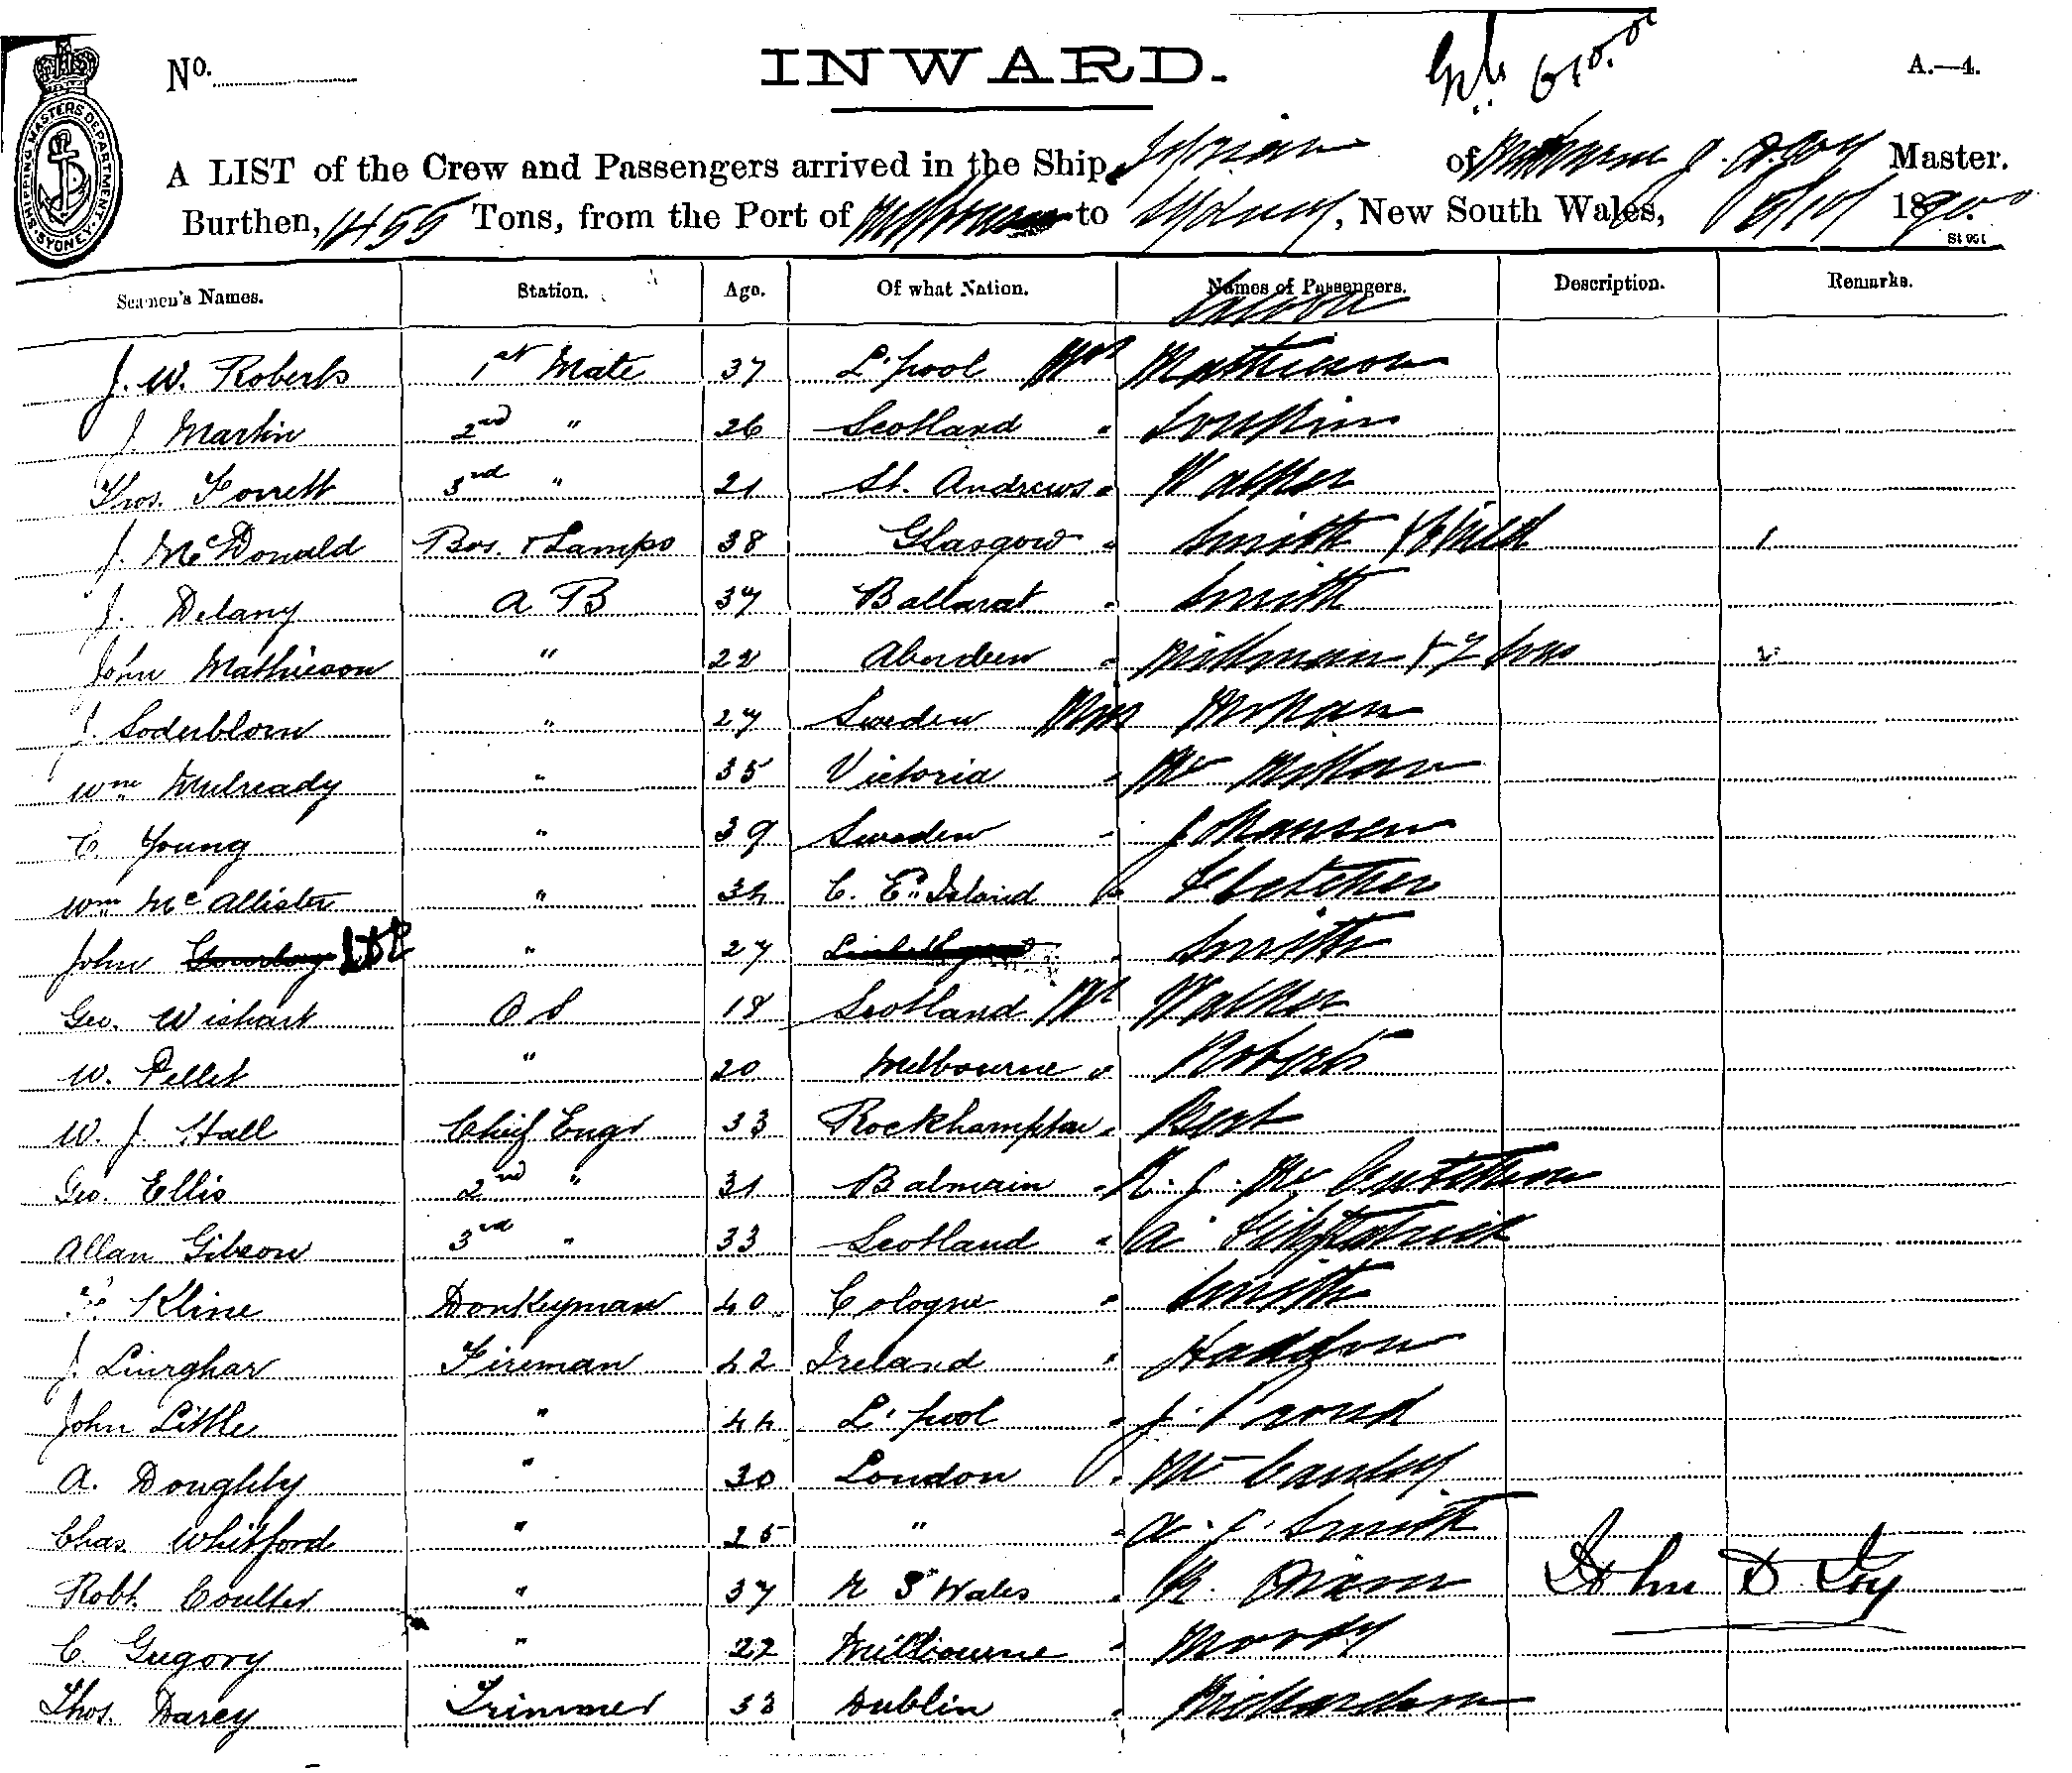 No.
INWARD.
A.—4.
SHIPPING MASTERS DEPARTMENT. SYDNEY.
A LIST of the Crew and Passengers arrived in the Ship of Master.
Burthen, 1455 Tons, from the Port of to Sydney, New South Wales, 18
Seamen's Names. Station. Age. Of what Nation. Names of Passengers. Description. Remarks.
Saloon
J. W. Roberts 1st Mate 37 L'pool Mrs Mathieson
J. Martin 2nd " 26 Scotland "
Thos. Forrett 3rd " 21 St. Andrews " Walker
J. McDonald Bos. & Lamps 38 Glasgow " Smith & Child 1
J. Delany A B 37 Ballarat " Smith
John Mathieson " 22 Aberdeen " & 2 2
J. Soderblom " 27 Sweden Miss
Wm Mulready " 35 Victoria " Mc
C. Young " 39 Sweden " Johansen
Wm McAllister " 34 C. En. Island Fletcher
John " 27 " Smith
Geo. Wishart O S 18 Scotland Mr Walker
W. Pellet " 20 Melbourne " Roberts
W. J. Hall Chief Engr 33 Rockhampton " Bert
Geo. Ellis 2nd " 31 Balmain " R. J. Mc Cutcheon
Allan Gibson 3rd " 33 Scotland " A. Fitzpatrick
F. Kline Donkeyman 40 Cologne " Smith
J. Fireman 42 Ireland "
John Little " 44 L'pool " J. Proud
A. Doughty " 30 London "
Chas. Whitford " 25 " " A. J. Smith
Robt. Coulter " 37 N S Wales " R.
John D. Loy
C. Gregory " 22 Melbourne " Moody
Thos. Darcy Trimmer 33 Dublin " Richardson